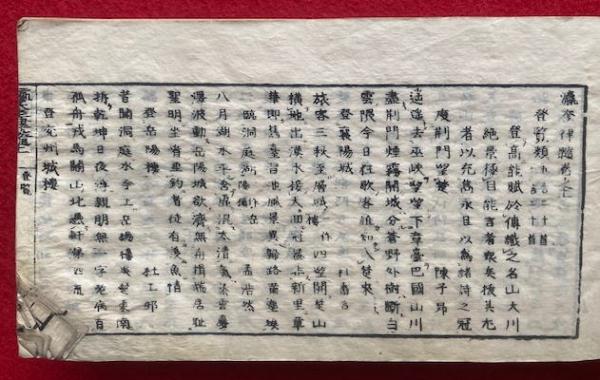 瀛奎律髓卷之一
登覽類
登高能賦於傳識之名山大川
絶景極目能言者衆矣拔其尤
者以充篇永且以為諸詩之冠
度荆門望楚 陳子昂
遥遥去巫峽望望下章臺巴國山川
盡荆門煙霧開城分蒼野外樹斷白
雲隈今日狂歌客誰知入楚來
登襄陽城 杜審言
旅客三秋至層城四望開楚山
横地出漢水接天回冠蓋非新里章
華即舊臺習池風景異歸路滿塵埃
臨洞庭湖 孟浩然
八月湖水平涵虚混太清氣蒸雲夢
澤波動岳陽城欲濟無舟楫端居耻
聖明坐看垂釣者徒有羨魚情
登岳陽樓 杜工部
昔聞洞庭水今上岳陽樓吳楚東南
拆乾坤日夜浮親朋無一字老病有
孤舟戎馬關山北憑軒涕泗流
登兖州城樓
登覽